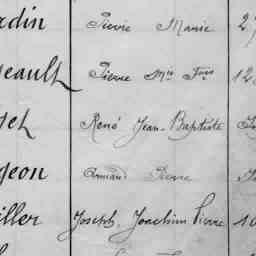 rdin Pierre Marie 27
eault Pierre Mie Fois 12
René Jean-Baptiste
geon Armand Pierre
iller Joseph, Joachim Pierre 10